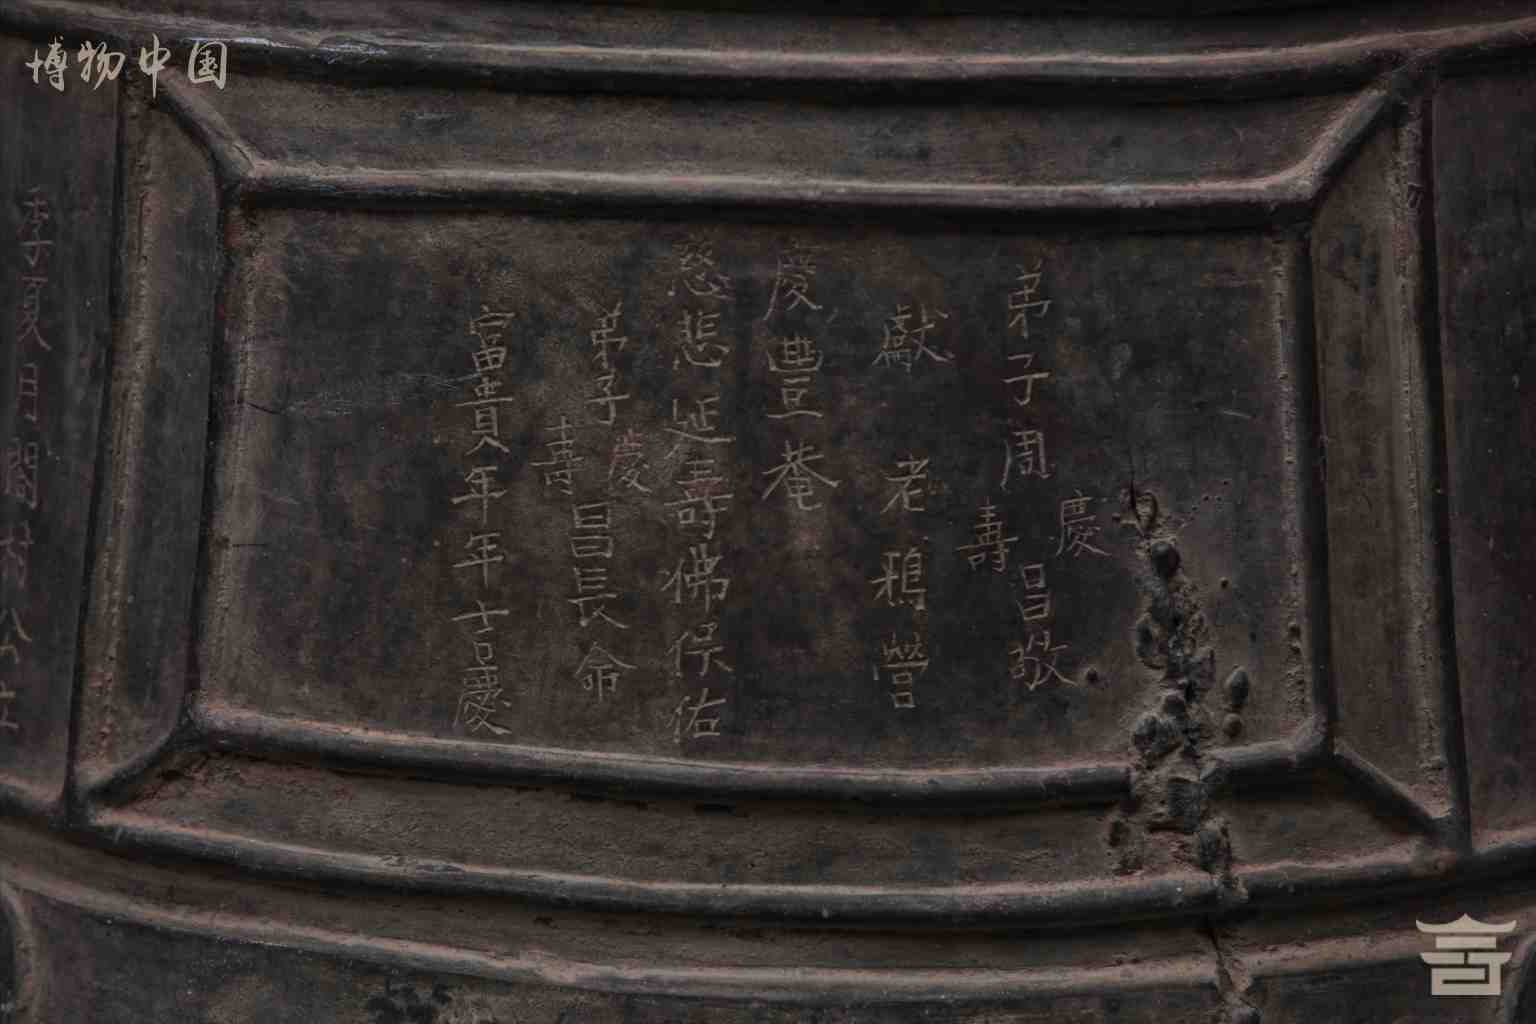 博物中国
弟子周慶壽昌敬
獻老鴉營
慶豐菴
慈悲延壽佛保佑
弟子慶壽昌長命
富貴年年吉慶
季夏月閤村公立